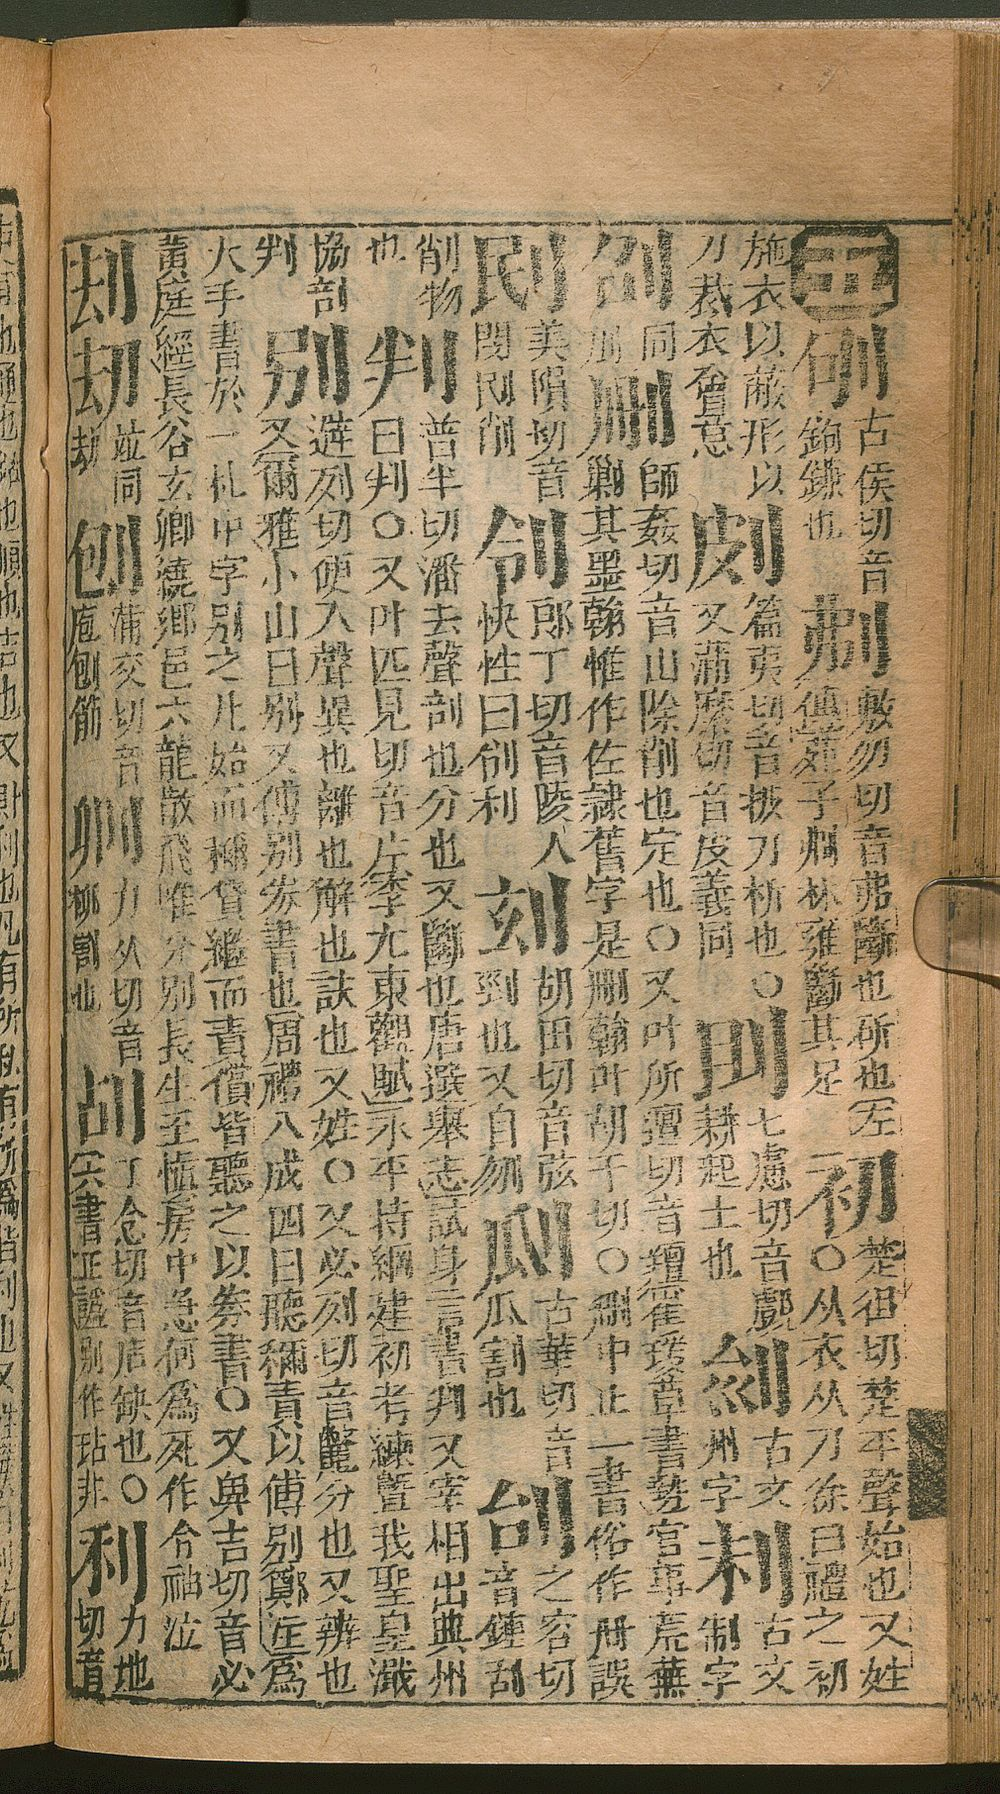 五 古侯切音鉤鎌也 刜 敷勿切音茀斷也斫也左傳苑子刜林雍斷其足 初 楚徂切楚平聲始也又姓○从衣从刀徐曰禮之初
施衣以蔽形以刀裁衣會意 㓟 篇夷切音披刀析也○又蒲縻切音皮義同 刞 七慮切音覷耕起土也 古文州字 古文制字
同刪 刪 師姦切音山除削也定也○又叶所邅切音羶崔瑗草書勢官事荒蕪剿其墨翰惟作佐隸舊字是刪翰叶胡千切○刪中止一書俗作冊誤
刡 美隕切音閔刡削 刢 郎丁切音陵人快性曰刢利 胡田切音弦剄也又自刎 古華切音瓜割也 刣 之容切音鍾刮
削物也 判 普半切潘去聲剖也分也又斷也唐選舉志試身言書判又宰相出典州曰判○又叶匹見切音片李尤東觀賦永平持綱建初考練暨我聖皇濺
協剖判 别 避列切便入聲異也離也解也訣也又姓○又必列切音鷩分也又辨也又爾雅小山曰别又傅别券書也周禮八成四曰聽稱責以傅别鄭註爲
大手書於一札中字别之凡始而稱貸繼而責償皆聽之以券書○又與吉切音必黃庭經長谷玄鄉繞郷邑六龍散飛惟分别長生至愼房中急何爲死作令神泣
刦 刧 並同劫 刨 蒲交切音庖刨筯 力久切音柳割也 丁念切音店缺也○六書正譌别作玷非 利 力地切音